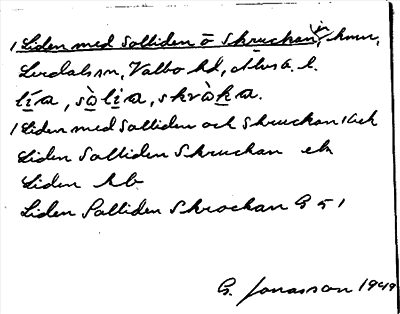 1 Liden med Solliden o Skruckan, in hmn,
Lerdals sn, Valbo hd, Älvsb. l.
lía, sòlía, skràka.
1 Liden med Solliden och Skruckan 1 Geh
Liden Solliden Skruckan ek
Liden hb
Liden Solliden Skrockan G 51
G. Jonasson 1949